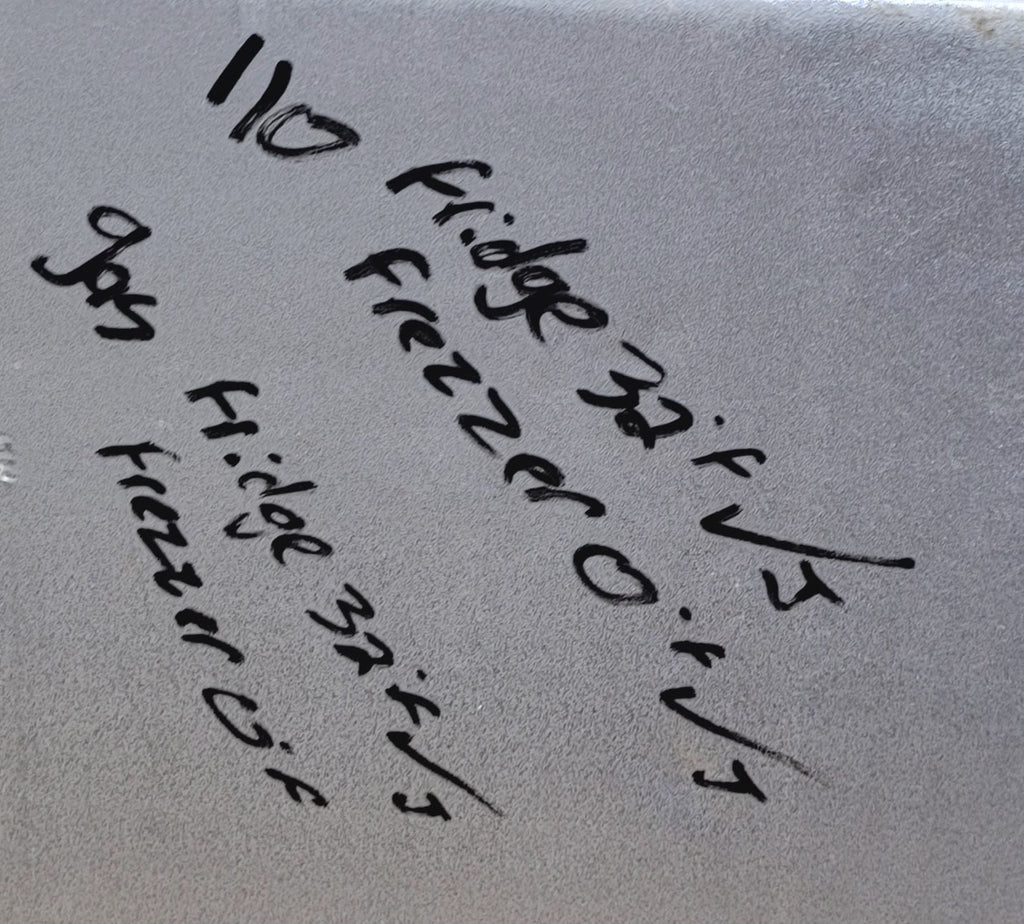 110 Fridge 32°F √ J
Frezzer 0°F √ J
gas Fridge 32°F √ J
Frezzer 0°F